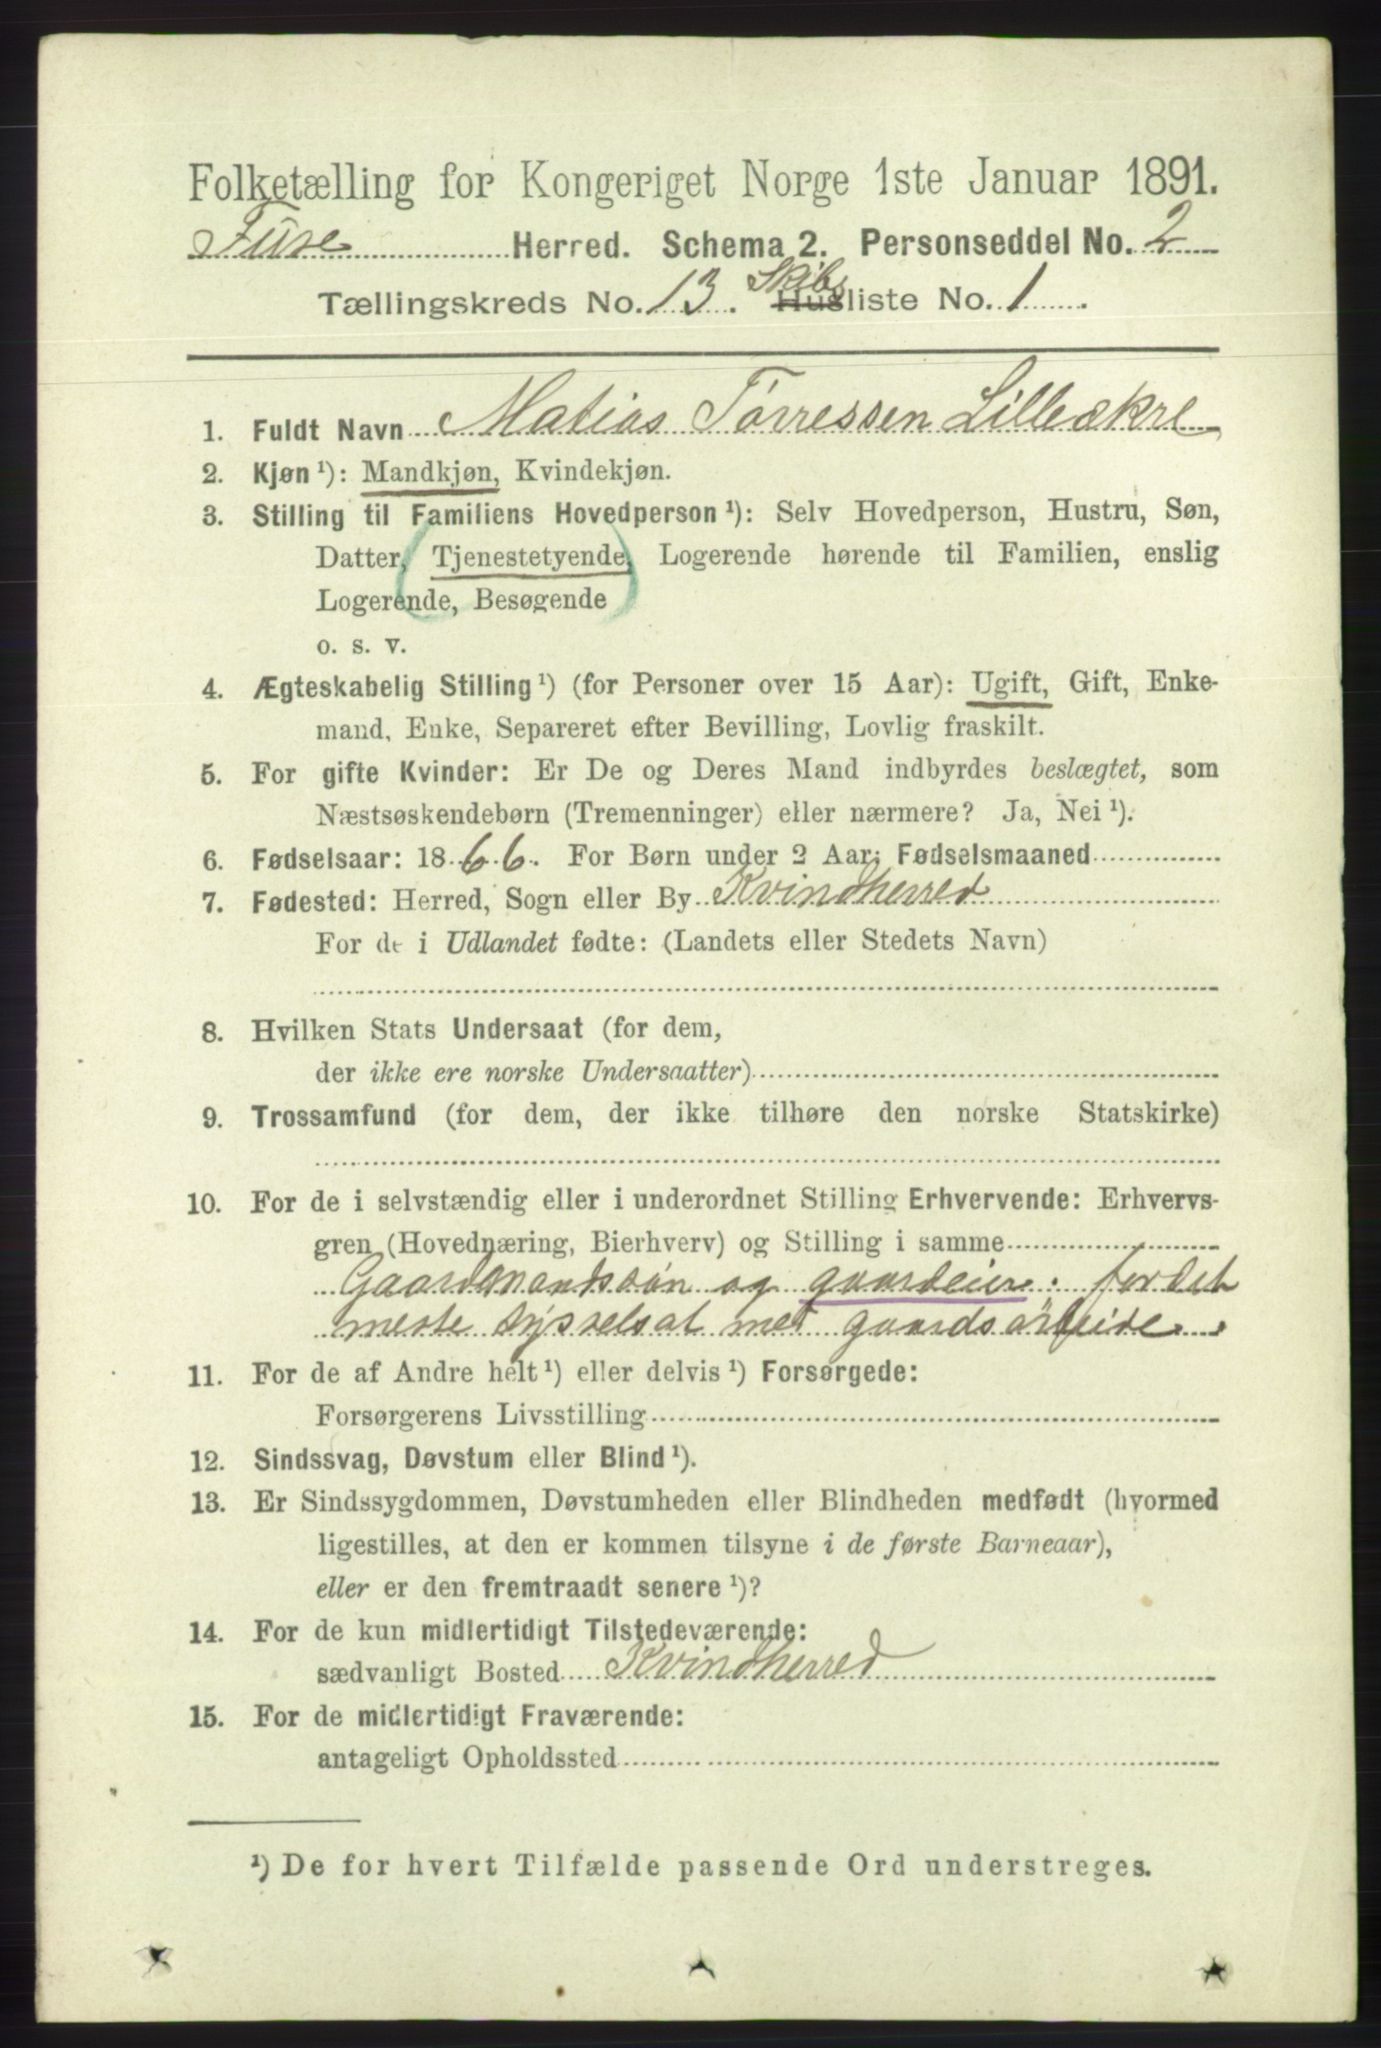 Folketælling for Kongeriget Norge 1ste Januar 1891.
Fuse Herred. Schema 2. Personseddel No. 2
Tællingskreds No. 13. Skibs Husliste No. 1
1. Fuldt Navn Matias Tørressen Lilleækre
2. Kjøn ¹): Mandkjøn, Kvindekjøn.
3. Stilling til Familiens Hovedperson ¹): Selv Hovedperson, Hustru, Søn,
Datter, Tjenestetyende, Logerende hørende til Familien, enslig
Logerende, Besøgende
o. s. v.
4. Ægteskabelig Stilling ¹) (for Personer over 15 Aar): Ugift, Gift, Enke-
mand, Enke, Separeret efter Bevilling, Lovlig fraskilt.
5. For gifte Kvinder: Er De og Deres Mand indbyrdes beslægtet, som
Næstsøskendebørn (Tremenninger) eller nærmere? Ja, Nei ¹).
6. Fødselsaar: 1866. For Børn under 2 Aar: Fødselsmaaned
7. Fødested: Herred, Sogn eller By Kvindherred
For de i Udlandet fødte: (Landets eller Stedets Navn)
8. Hvilken Stats Undersaat (for dem,
der ikke ere norske Undersaatter)
9. Trossamfund (for dem, der ikke tilhøre den norske Statskirke)
10. For de i selvstændig eller i underordnet Stilling Erhvervende: Erhvervs-
gren (Hovednæring, Bierhverv) og Stilling i samme
Gaardmandssøn og gaardeier. fordet
meste sysselsat med gaardsarbeide.
11. For de af Andre helt ¹) eller delvis ¹) Forsørgede:
Forsørgerens Livsstilling
12. Sindssvag, Døvstum eller Blind ¹).
13. Er Sindssygdommen, Døvstumheden eller Blindheden medfødt (hvormed
ligestilles, at den er kommen tilsyne i de første Barneaar),
eller er den fremtraadt senere ¹)?
14. For de kun midlertidigt Tilstedeværende:
sædvanligt Bosted Kvindherred
15. For de midlertidigt Fraværende:
antageligt Opholdssted
¹) De for hvert Tilfælde passende Ord understreges.